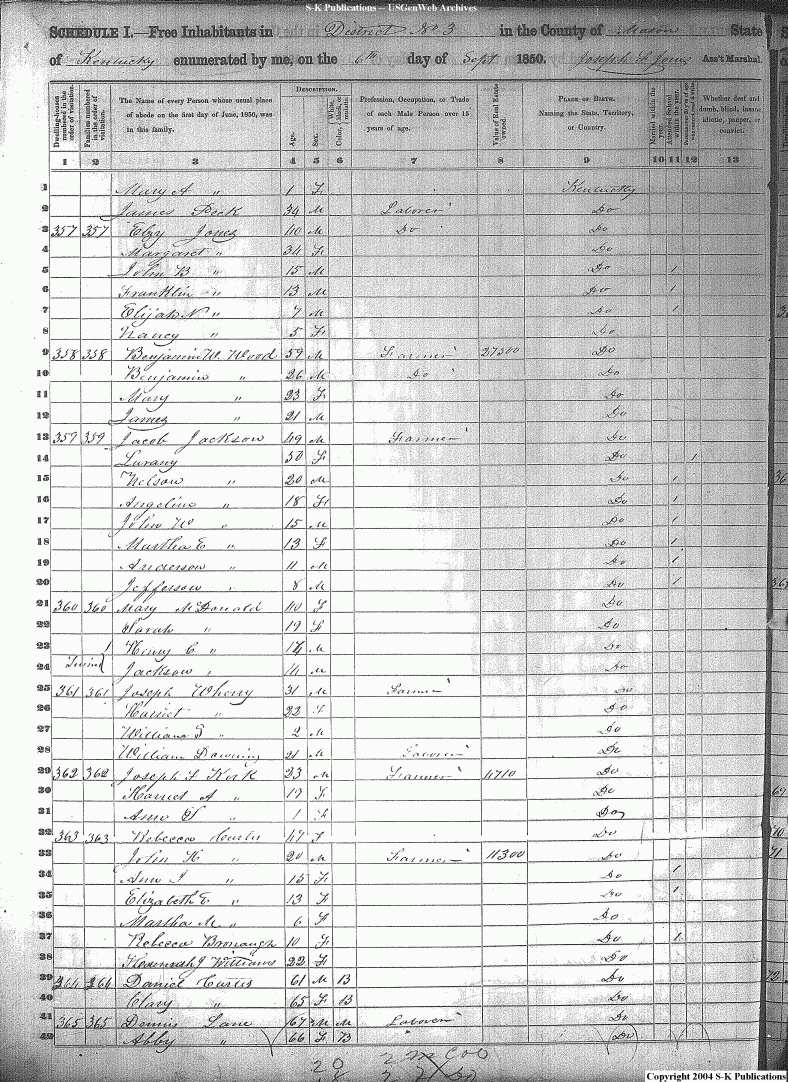 S-K Publications -- USGenWeb Archives
SCHEDULE I.—Free Inhabitants in District No 3 in the County of Mason State
of Kentucky enumerated by me, on the 6th day of Sept 1850. Joseph F Jones Ass't Marshal.
Dwelling-houses numbered in the order of visitation.
Families numbered in the order of visitation.
The Name of every Person whose usual place of abode on the first day of June, 1850, was in this family.
Description.
Age.
Sex.
Color, White, black, or mulatto.
Profession, Occupation, or Trade of each Male Person over 15 years of age.
Value of Real Estate owned.
Place of Birth. Naming the State, Territory, or Country.
Married within the year.
Attended School within the year.
Whether deaf and dumb, blind, insane, idiotic, pauper, or convict.
1 2 3 4 5 6 7 8 9 10 11 12 13
1 Mary A " 1 F Kentucky
2 James Peck 34 M Laborer Do
3 357 357 Elzy Jones 40 M Do Do
4 Margaret " 34 F Do
5 John B " 15 M Do 1
6 Franklin " 13 M Do 1
7 Elijah N " 7 M Do 1
8 Nancy " 5 F Do
9 358 358 Benjamin W. Wood 59 M Farmer 27500 Do
10 Benjamin " 26 M Do Do
11 Mary " 23 F Do
12 James " 21 M Do
13 359 359 Jacob Jackson 49 M Farmer Do
14 Lurany 50 F Do 1
15 Nelson " 20 M Do 1
16 Angeline " 18 F Do 1
17 John W " 15 M Do 1
18 Martha E " 13 F Do 1
19 Anderson " 11 M Do 1
20 Jefferson " 8 M Do 1
21 360 360 Mary McDonald 40 F Do
22 Sarah " 19 F Do
23 Henry C " 14 M Do
24 Jackson " 14 M Do
25 361 361 Joseph Wherry 31 M Farmer Do
26 Harriet " 22 F Do
27 William S " 2 M Do
28 William Downing 21 M Laborer Do
29 362 362 Joseph F Kirk 23 M Farmer 4710 Do
30 Harriet A " 17 F Do
31 Ann " 1 F Do
32 363 363 Rebecca Curtis 47 F Do
33 John H " 20 M Farmer 11300 Do
34 Ann J " 15 F Do 1
35 Elizabeth E " 13 F Do 1
36 Martha M " 6 F Do
37 Rebecca Bronaugh 10 F Do 1
38 Williams 22 F Do
39 364 264 Daniel Curtis 61 M B Do
40 Clary " 65 F B Do
41 365 365 Dennis Lane 67 M M Laborer Do
42 Abby " 66 F B Do
Copyright 2004 S-K Publications